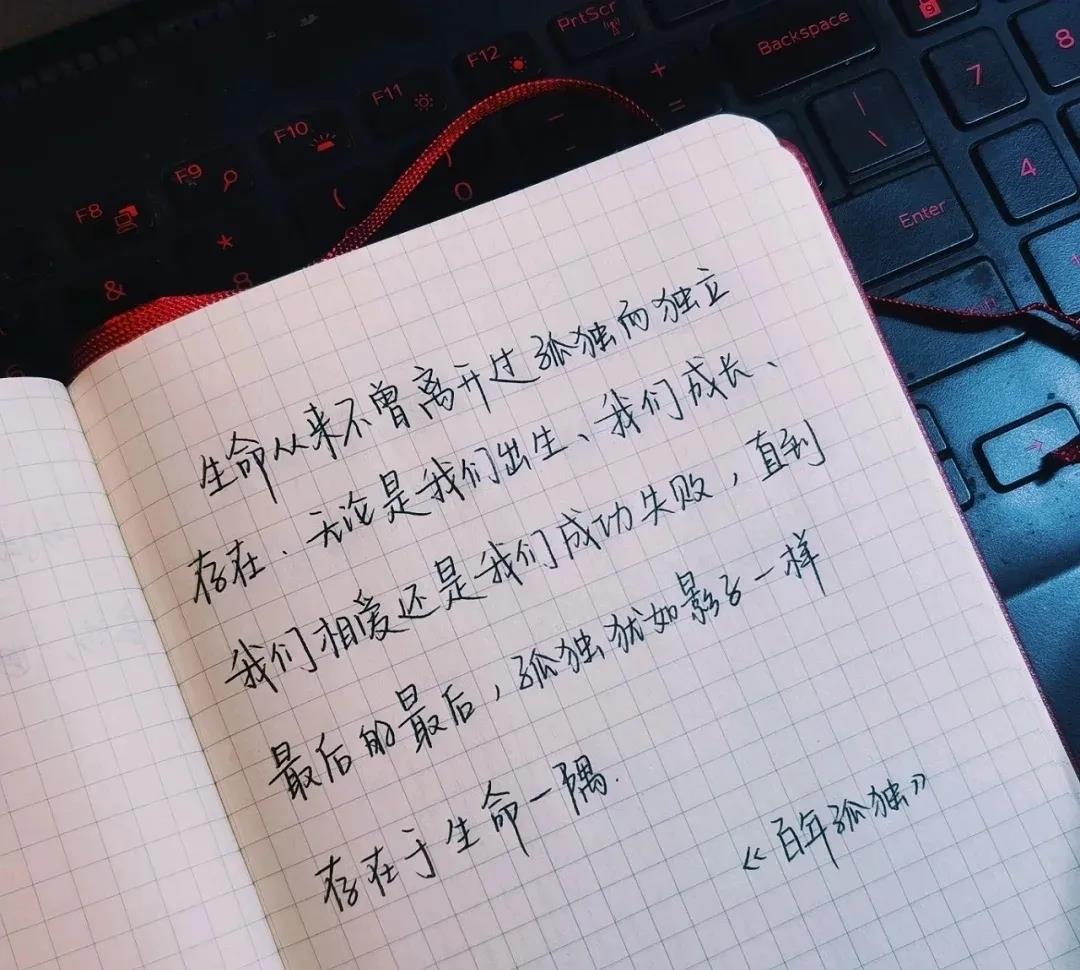 PrtScr
F12
Backspace
9
8
F11
+
=
|
\
7
F10
F9
F8
)
0
(
*
8
&
4
Enter
生命从来不曾离开过孤独而独立
存在.无论是我们出生、我们成长、
我们相爱还是我们成功失败,直到
最后的最后,孤独犹如影子一样
存在于生命一隅.
《百年孤独》